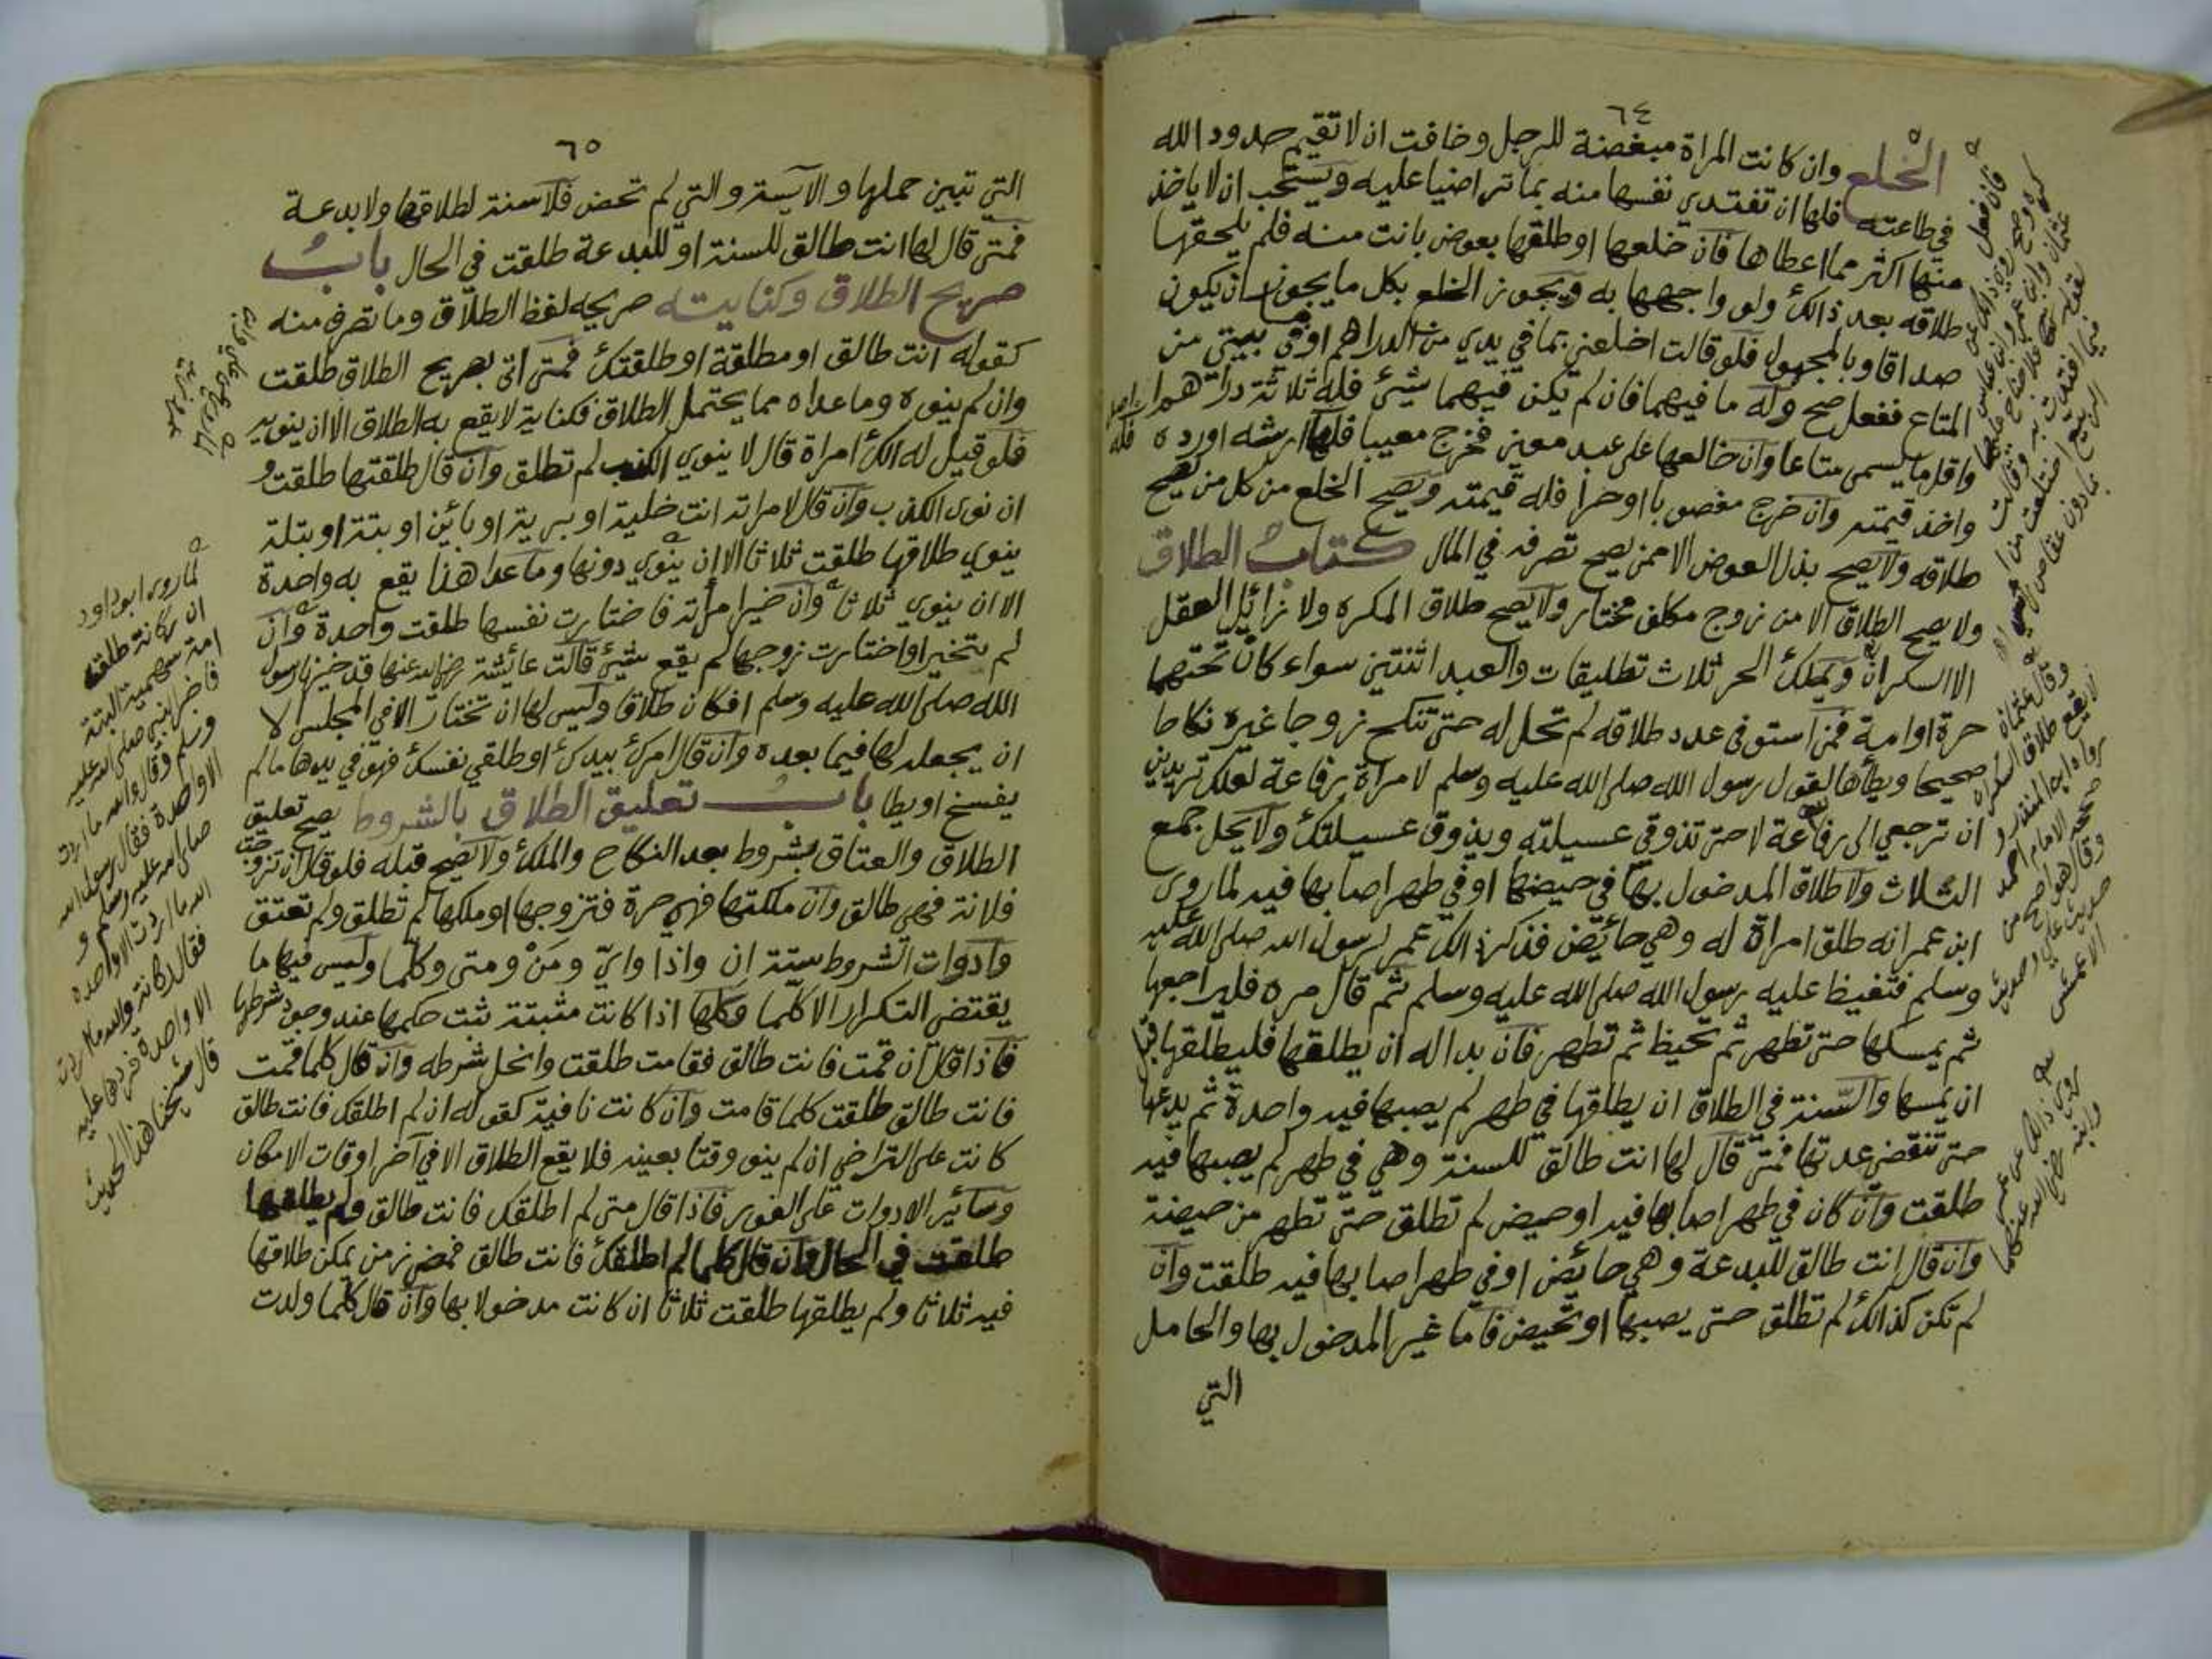 ٦٤
الخلع وان كانت المراة مبغضة للرجل وخافت ان لا تقيم حدود الله
في طاعته فلها ان تفتدي نفسها منه بما تراضيا عليه ويستحب ان لا ياخذ
منها اكثر مما اعطاها فان خلعها او طلقها بعوض بانت منه فلم يلحقها
طلاقه بعد ذالك ولو واجهها به ويجوز الخلع بكل ما يجوز ان يكون
صداقا وبالمجهول فلو قالت اخلعني بما في يدي من الدراهم او ما في بيتي من
المتاع ففعل صح وله ما فيهما فان لم يكن فيهما شيئ فله ثلاثة دراهم
واقل ما يسمى متاعا وان خالعها على عبد معين فخرج معيبا فله ارشه اورده
واخذ قيمته وان خرج مغصوبا او حرا فله قيمته ويصح الخلع من كل من يصح
طلاقه ولا يصح بذل العوض الا ممن يصح تصرفه في المال كتاب الطلاق
ولا يصح الطلاق الا من زوج مكلف مختار ولا يصح طلاق المكره ولا زائل العقل
الا السكران ويملك الحر ثلاث تطليقات والعبد اثنتين سواء كان تحتهما
حرة او امة فمن استوفى عدد طلاقه لم تحل له حتى تنكح زوجا غيره نكاحا
صحيحا ويطأها لقول رسول الله صلى الله عليه وسلم لامراة رفاعة لعلك تريدين
ان ترجعي الى رفاعة لا حتى تذوقي عسيلته ويذوق عسيلتك ولا يحل جمع
الثلاث ولا طلاق المدخول بها في حيضها او في طهر اصابها فيه لما روى
ابن عمر انه طلق امراة له وهي حائض فذكر ذالك عمر لرسول الله صلى الله عليه
وسلم فتغيظ عليه رسول الله صلى الله عليه وسلم ثم قال مره فليراجعها
ثم يمسكها حتى تطهر ثم تحيظ ثم تطهر فان بدا له ان يطلقها فليطلقها قبل
ان يمسها والسنة في الطلاق ان يطلقها في طهر لم يصبها فيه واحدة ثم يدعها
حتى تنقضي عدتها فمتى قال لها انت طالق للسنة وهي في طهر لم يصبها فيه
طلقت وان كان في طهر اصابها فيه او حيض لم تطلق حتى تطهر من حيضة
وان قال انت طالق للبدعة وهي حائض او في طهر اصابها فيه طلقت وان
لم تكن كذالك لم تطلق حتى يصبها او تحيض فاما غير المدخول بها والحامل
التي
وقال عثمان
لا يقع طلاق السكران
رواه ابن المنذر و
صححه الامام احمد
وقال هو اصح من
حديث علي وحديث
الاعمش
روي ذالك عن عمر
وابنه رضي الله عنهما
٦٥
التي تبين حملها والآيسة والتي لم تحض فلا سنة لطلاقها ولا بدعة
فمتى قال لها انت طالق للسنة او للبدعة طلقت في الحال باب
صريح الطلاق وكنايته صريحه لفظ الطلاق وما تصرف منه
كقوله انت طالق او مطلقة او طلقتك فمتى اتى بصريح الطلاق طلقت
وان لم ينوه وما عداه مما يحتمل الطلاق فكناية لا يقع به الطلاق الا ان ينويه
فلو قيل له الك امراة قال لا ينوي الكذب لم تطلق وان قال طلقتها طلقت و
ان نوى الكذب وان قال لامراته انت خلية او برية او بائن او بتة او بتلة
ينوي طلاقها طلقت ثلاثا الا ان ينوي دونها وما عدا هذا يقع به واحدة
الا ان ينوي ثلاثا وان خير امرأته فاختارت نفسها طلقت واحدة وان
لم تختر او اختارت زوجها لم يقع شيئ قالت عائشة رضي الله عنها قد خيرنا رسول
الله صلى الله عليه وسلم افكان طلاقا وليس لها ان تختار الا في المجلس الا
ان يجعله لها فيما بعده وان قال امرك بيدك او طلقي نفسك فهو في يدها ما لم
يفسخ او يطا باب تعليق الطلاق بالشروط يصح تعليق
الطلاق والعتاق بشروط بعد النكاح والملك ولا يصح قبله فلو قال ان تزوجت
فلانة فهي طالق وان ملكتها فهي حرة فتزوجها او ملكها لم تطلق ولم تعتق
وادوات الشروط ستة ان واذا واي ومن ومتى وكلما وليس فيها ما
يقتضي التكرار الا كلما وكلها اذا كانت مثبتة ثبت حكمها عند وجود شرطها
فاذا قال ان قمت فانت طالق فقامت طلقت وانحل شرطه وان قال كلما قمت
فانت طالق طلقت كلما قامت وان كانت نافية كقوله ان لم اطلقك فانت طالق
كانت على التراخي ان لم ينو وقتا بعينه فلا يقع الطلاق الا في آخر اوقات الامكان
وسائر الادوات على الفور فاذا قال متى لم اطلقك فانت طالق ولم يطلقها
طلقت في الحال وان قال كلما لم اطلقك فانت طالق فمضى زمن يمكن طلاقها
فيه ثلاثا ولم يطلقها طلقت ثلاثا ان كانت مدخولا بها وان قال كلما ولدت
لما روى ابو داود
ان ركانة طلق
امرته سهيمة البتة
فاخبر النبي صلى الله عليه
وسلم وقال والله ما اردت
الا واحدة فقال رسول الله
صلى الله عليه وسلم و
الله ما اردت الا واحدة
فقال ركانة والله ما اردت
الا واحدة فردها عليه
قال شيخنا هذا الحديث